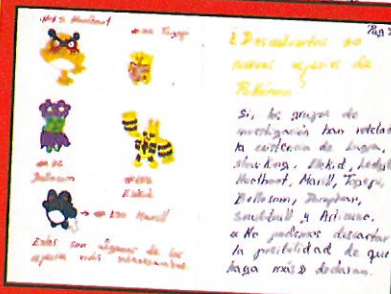 Hoothoot
Togepi
Bellosom
Elekid
Marill
Estas son algunas de las
especies más interesantes.
Pag
¿Descubiertas
nuevas especies de
Pokémon?
Sí, los grupos de
investigación han revelado
la existencia de Lugia,
Slowking, Elekid, Ledyba
Hoothoot, Marill, Togepi,
Bellosom, Donphan,
Snubbull y
« No podemos descartar
la posibilidad de que
haya más » declaran.